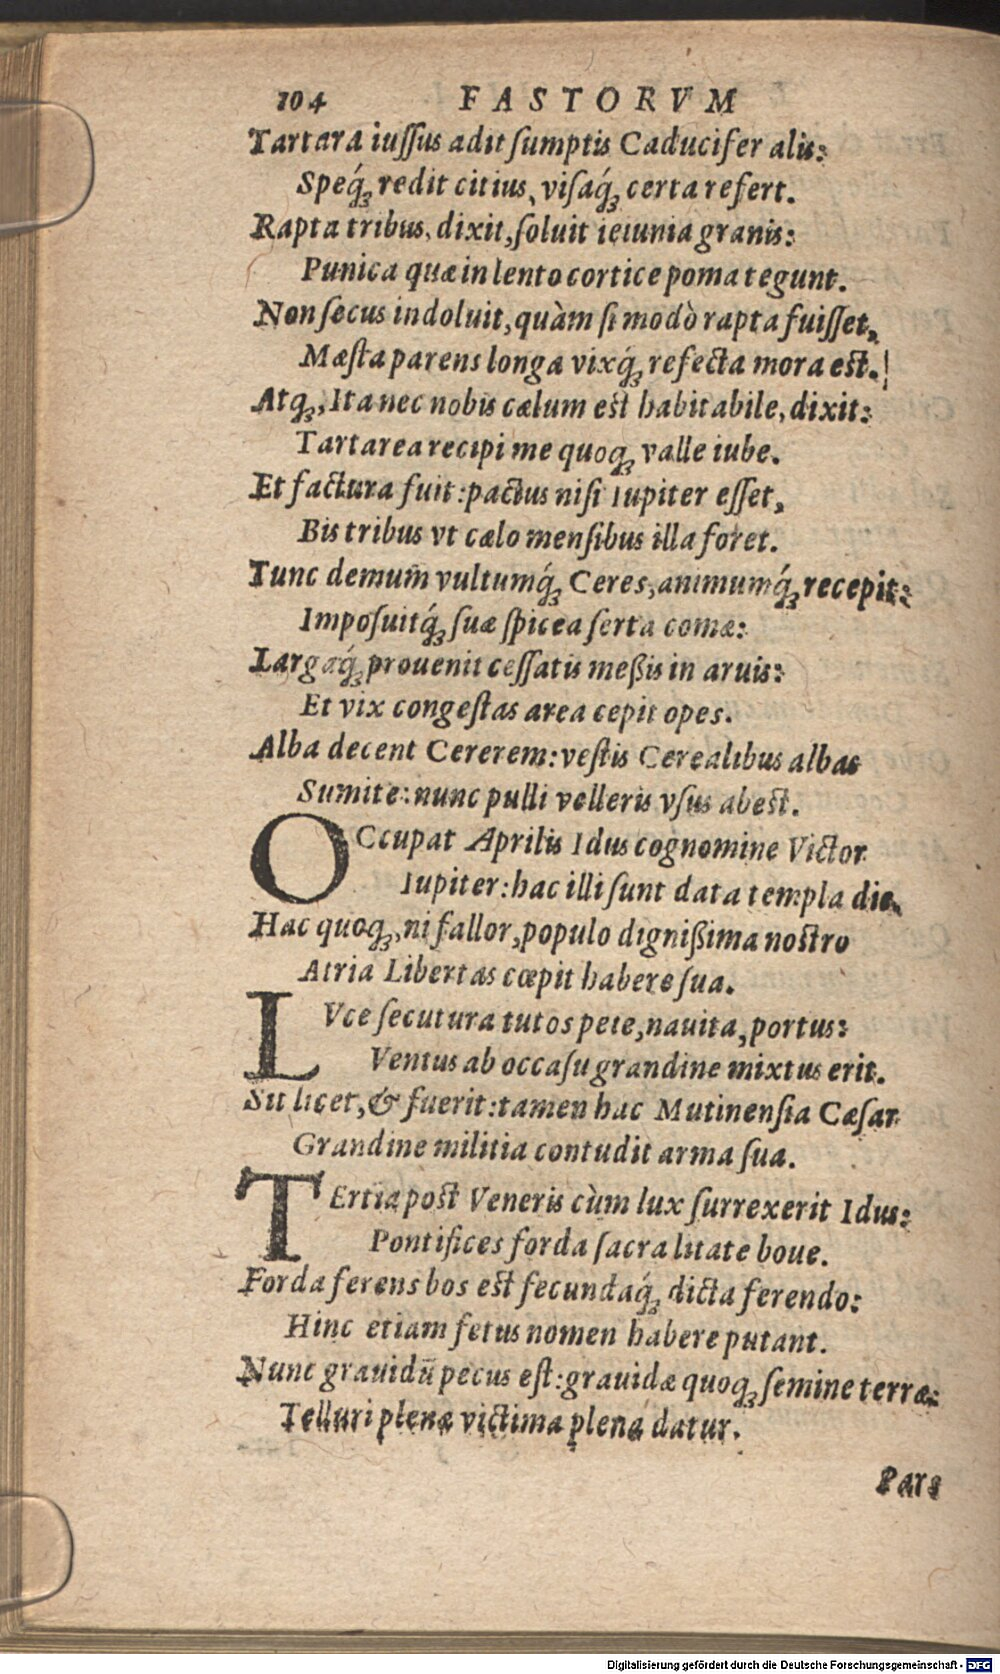 104 FASTORVM
Tartara iuſſus adit ſumptis Caducifer alis:
Speq́ꝫ redit citius, viſaq́ꝫ certa refert.
Rapta tribus, dixit, ſoluit ieiunia granis:
Punica quæ in lento cortice poma tegunt.
Non ſecus indoluit, quàm ſi modò rapta fuiſſet,
Mæſta parens longa vixq́ꝫ refecta mora est.
Atqꝫ, Ita nec nobis cælum est habitabile, dixit:
Tartarea recipi me quoqꝫ valle iube.
Et factura fuit: pactus niſi Iupiter eſſet,
Bis tribus vt cælo menſibus illa foret.
Tunc demum vultumq́ꝫ Ceres, animumq́ꝫ recepit:
Impoſuitq́ꝫ ſuæ ſpicea ſerta comæ:
Largaq́ꝫ prouenit ceſſatis meßis in aruis:
Et vix congeſtas area cepit opes.
Alba decent Cererem: veſtis Cerealibus albas
Sumite: nunc pulli velleris vſus abest.
OCcupat Aprilis Idus cognomine Victor
Iupiter: hac illi ſunt data templa die.
Hac quoqꝫ, ni fallor, populo dignißima nostro
Atria Libertas cœpit habere ſua.
LVce ſecutura tutos pete, nauita, portus:
Ventus ab occaſu grandine mixtus erit.
Sit licet, & fuerit: tamen hac Mutinenſia Cæſar
Grandine militia contudit arma ſua.
TErtia post Veneris cùm lux ſurrexerit Idus:
Pontifices forda ſacra litate boue.
Forda ferens bos est fecundaq́ꝫ dicta ferendo:
Hinc etiam fetus nomen habere putant.
Nunc grauidū pecus eſt: grauidæ quoqꝫ ſemine terræ:
Telluri plenæ victima plena datur.
Pars
Digitalisierung gefördert durch die Deutsche Forschungsgemeinschaft - DFG